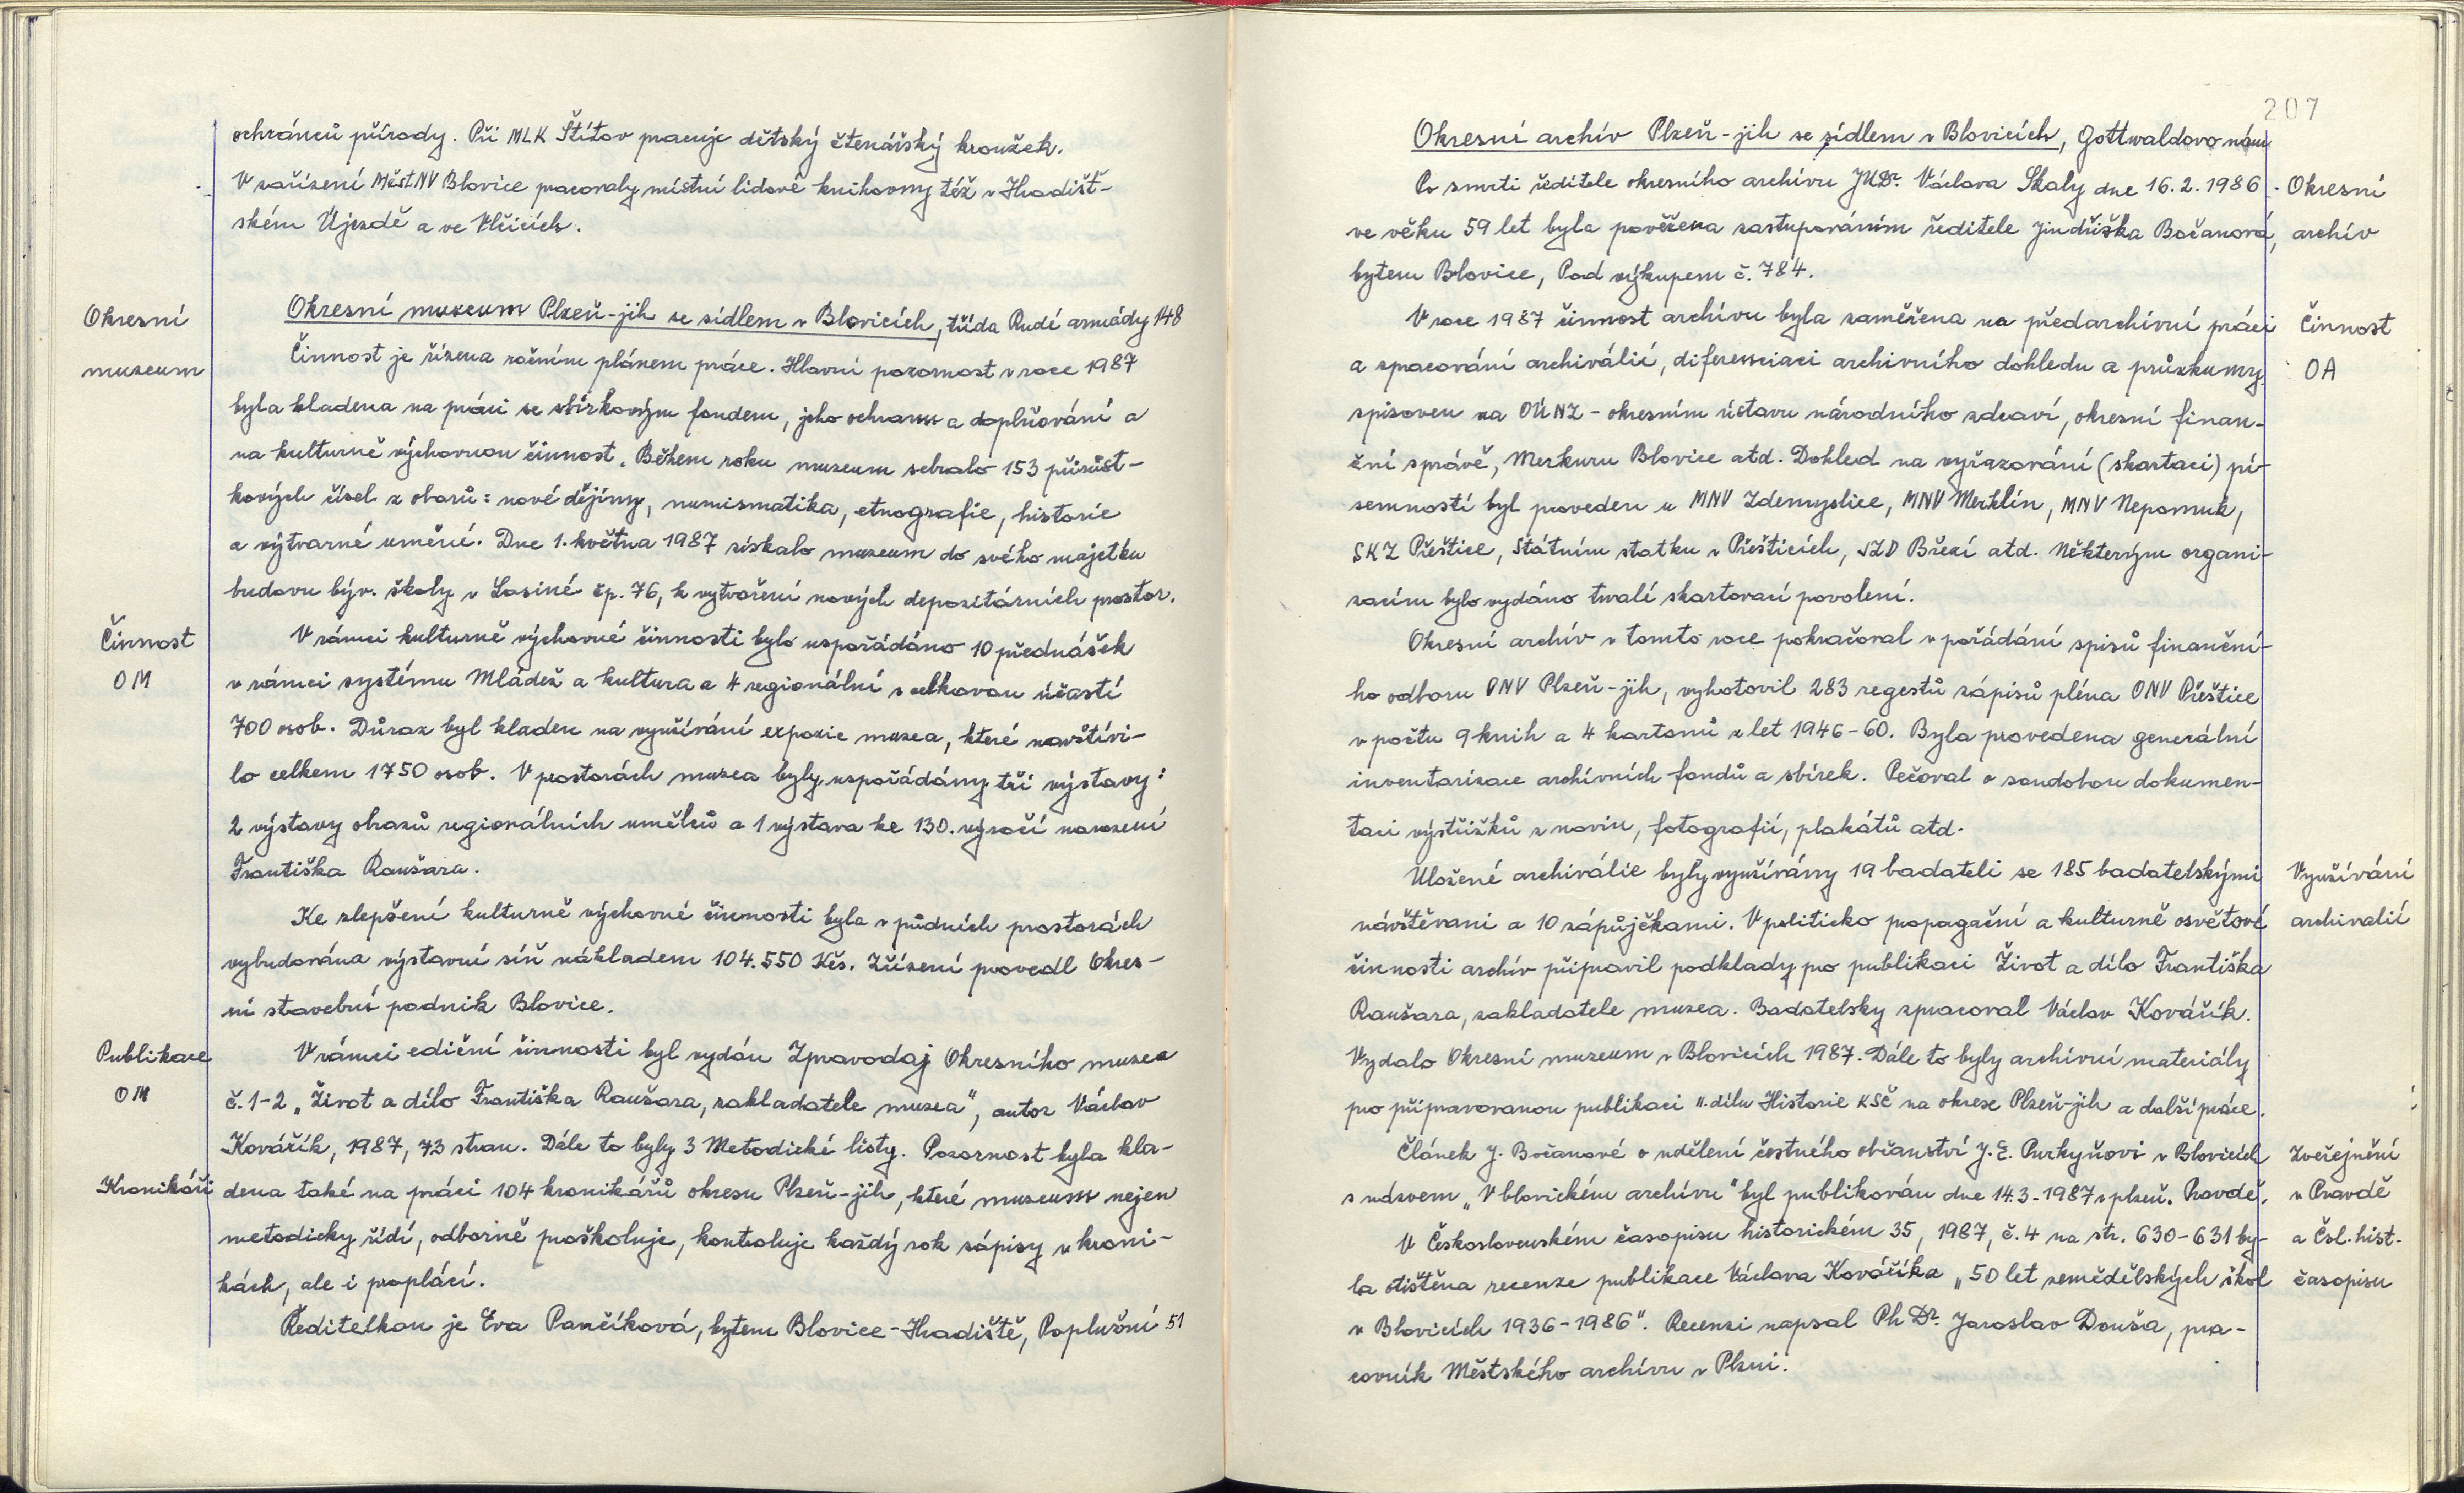 ochránců přírody. Při MLK Štítov pracuje dětský čtenářský kroužek.
V zařízení MěstNV Blovice pracovaly místní lidové knihovny též v Hradišť-
ském Újezdě a ve Vlčicích.
Okresní
museum
Okresní museum Plzeň-jih se sídlem v Blovicích, třída Rudé armády 148
Činnost je řízena ročním plánem práce. Hlavní pozornost v roce 1987
byla kladena na práci se sbírkovým fondem, jeho ochranu a doplňování a
na kulturně výchovnou činnost. Během roku museum sebralo 153 přírůst-
kových čísel z oborů: nové dějiny, numismatika, etnografie, historie
a výtvarné umění. Dne 1. května 1987 získalo museum do svého majetku
budovu býv. školy v Losiné čp. 76, k vytvoření nových depozitárních prostor.
Činnost
OM
V rámci kulturně výchovné činnosti bylo uspořádáno 10 přednášek
v rámci systému Mládež a kultura a 4 regionální s celkovou účastí
700 osob. Důraz byl kladen na využívání expozic muzea, které navštívi-
lo celkem 1750 osob. V prostorách muzea byly uspořádány tři výstavy:
2 výstavy obrazů regionálních umělců a 1 výstava ke 130. výročí narození
Františka Raušara.
Ke zlepšení kulturně výchovné činnosti byla v půdních prostorách
vybudována výstavní síň nákladem 104.550 Kčs. Zřízení provedl Okres-
ní stavební podnik Blovice.
Publikace
OM
V rámci ediční činnosti byl vydán Zpravodaj Okresního muzea
č. 1-2 „Život a dílo Františka Raušara, zakladatele muzea", autor Václav
Kovářík, 1987, 73 stran. Dále to byly 3 Metodické listy. Pozornost byla kla-
Kronikáři
dena také na práci 104 kronikářů okresu Plzeň-jih, které museum nejen
metodicky řídí, odborně proškoluje, kontroluje každý rok zápisy v kroni-
kách, ale i proplácí.
Ředitelkou je Eva Pančíková, bytem Blovice-Hradiště, Poplužní 51
207
Okresní archív Plzeň-jih se sídlem v Blovicích, Gottwaldovo nám
Okresní
archív
Po smrti ředitele okresního archívu JUDr. Václava Skaly dne 16.2.1986
ve věku 59 let byla pověřena zastupováním ředitele Jindřiška Bočanová,
bytem Blovice, Pod výkupem č. 784.
Činnost
OA
V roce 1987 činnost archívu byla zaměřena na předarchívní práci
a zpracování archiválií, diferenciaci archivního dohledu a průzkumy
spisoven na OÚNZ - okresním ústavu národního zdraví, okresní finan-
ční správě, Merkuru Blovice atd. Dohled na vyřazování (skartaci) pí-
semností byl proveden u MNV Zdemyslice, MNV Merklín, MNV Nepomuk,
SKZ Přeštice, Státním statku v Přešticích, JZD Březí atd. Některým organi-
zacím bylo vydáno trvalé skartovací povolení.
Okresní archív v tomto roce pokračoval v pořádání spisů finanční-
ho odboru ONV Plzeň-jih, vyhotovil 283 regestů zápisů pléna ONV Přeštice
v počtu 9 knih a 4 kartonů z let 1946-60. Byla provedena generální
inventarizace archívních fondů a sbírek. Pečoval o soudobou dokumen-
taci výstřižků z novin, fotografií, plakátů atd.
Využívání
archivalií
Uložené archiválie byly využívány 19 badateli se 185 badatelskými
návštěvami a 10 zápůjčkami. V politicko propagační a kulturně osvětové
činnosti archív připravil podklady pro publikaci Život a dílo Františka
Raušara, zakladatele muzea. Badatelsky zpracoval Václav Kovářík.
Vydalo Okresní muzeum v Blovicích 1987. Dále to byly archívní materiály
pro připravovanou publikaci II. dílu Historie KSČ na okrese Plzeň-jih a další práce.
Zveřejnění
v Pravdě
a Čsl. hist.
časopisu
Článek J. Bočanové o udělení čestného občanství J. E. Purkyňovi v Blovicích
s názvem „V blovickém archívu" byl publikován dne 14.3.1987 v plzeň. Pravdě.
V Československém časopisu historickém 35, 1987, č. 4 na str. 630-631 by-
la otištěna recenze publikace Václava Kováříka „50 let zemědělských škol
v Blovicích 1936-1986". Recenzi napsal PhDr. Jaroslav Douša, pra-
covník Městského archívu v Plzni.